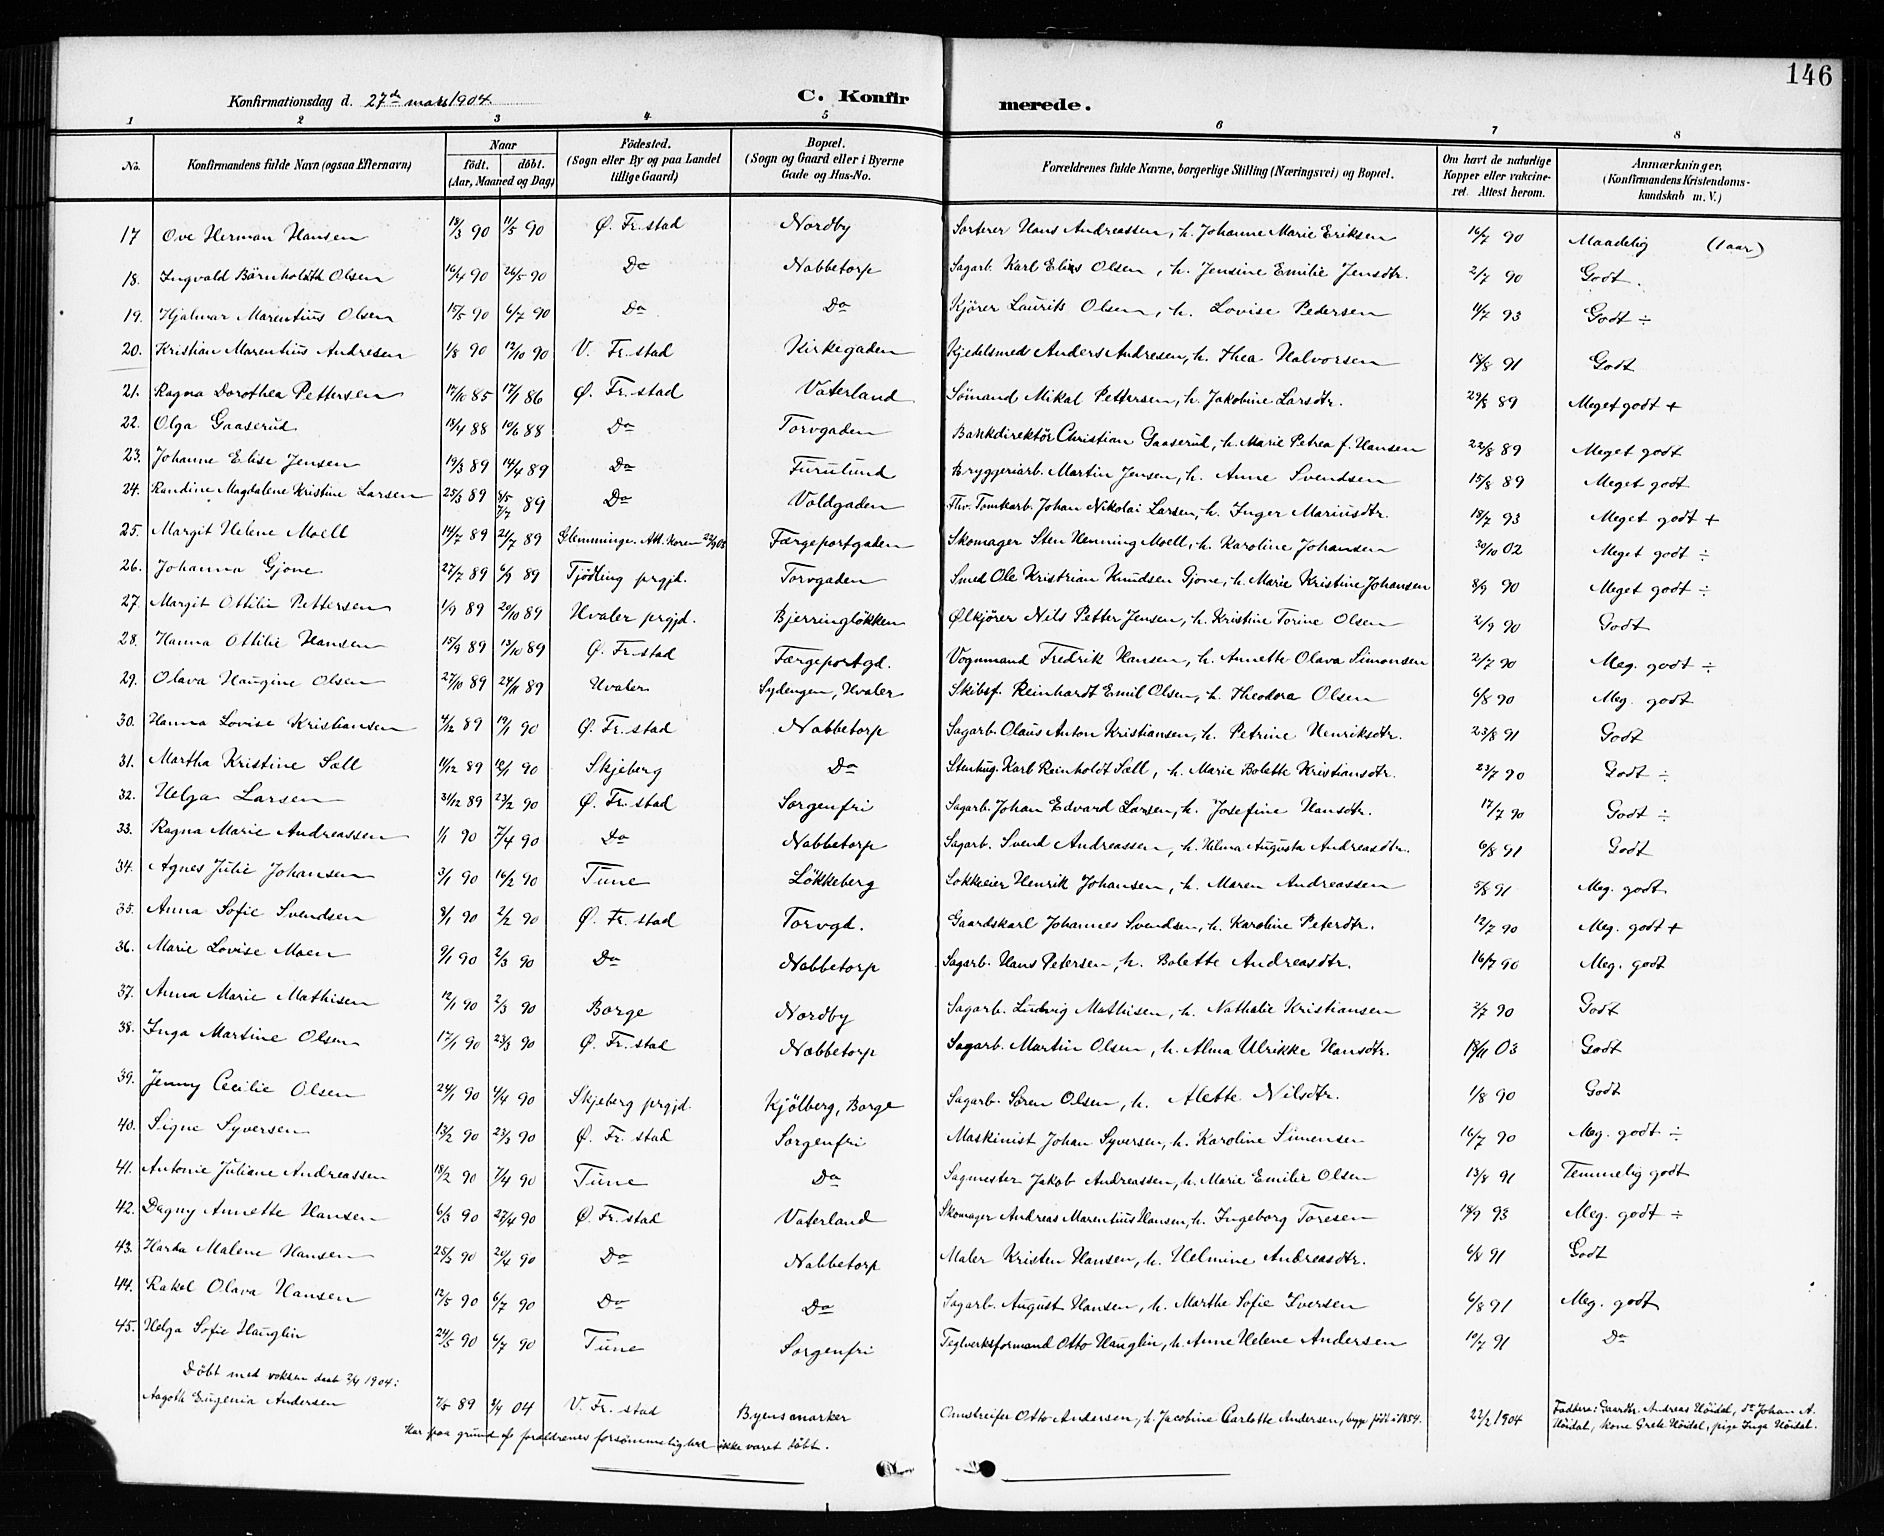 146
Konfirmationsdag d. 27de mars 1904
C. Konfirmerede.
1 2 3 4 5 6 7 8
No. | Konfirmandens fulde Navn (ogsaa Efternavn) | Naar født. døbt. (Aar, Maaned og Dag) | Fødested. (Sogn eller By og paa Landet tillige Gaard) | Bopæl. (Sogn og Gaard eller i Byerne Gade og Hus-No. | Forældrenes fulde Navne, borgerlige Stilling (Næringsvei) og Bopæl. | Om havt de naturlige Kopper eller vakcineret. Attest herom. | Anmærkninger, (Konfirmandens Kristendomskundskab m. V.)
17 Ove Herman Hansen 18/3 90 11/5 90 Ø. Fr.stad Nordby Sorterer Hans Andreassen, h. Johanne Marie Eriksen 16/7 90 Maadelig (1 aar)
18. Ingvald Børnholdth Olsen 16/4 90 26/5 90 Do Nabbetorp Sagarb. Karl Elias Olsen, h. Jensine Emilie Jensdtr. 2/7 90 Godt.
19. Hjalmar Marentius Olsen 15/5 90 6/7 90 Do Do Kjører Laurits Olsen, h. Lovise Pedersen 11/7 93 Godt ÷
20. Kristian Marentius Andresen 1/8 90 12/10 90 V. Fr.stad Kirkegaden Kjedelsmed Anders Andresen, h. Thea Halvorsen 18/8 91 Godt
21. Ragna Dorothea Pettersen 17/10 85 17/1 86 Ø. Fr.stad Vaterland Sømand Mikal Pettersen, h. Jakobine Larsdtr. 29/8 89 Meget godt +
22. Olga Gaaserud 13/4 88 10/6 88 Do Torvgaden Bankdirektør Christian Gaaserud, h. Marie Petrea f. Hansen 22/8 89 Meget godt
23. Johanne Elise Jensen 19/3 89 14/4 89 Do Furulund Bryggeriarb. Martin Jensen, h. Anne Svendsen 15/8 89 Meget godt
24. Randine Magdalene Kristine Larsen 25/3 89 5/5 7/7 89 Do Voldgaden Thv. Tomtarb. Johan Nikolai Larsen, h. Inger Mariusdtr. 18/7 93 Meget godt +
25. Margit Helene Moell 14/7 89 21/7 89 Glemminge. Att. Koren 22/9 03 Færgeportgaden Skomager Sten Henning Moell, h. Karoline Johansen 30/10 02 Meget godt ÷
26. Johanna Gjone 27/7 89 6/9 89 Tjødling prgjd. Torvgaden Smed Ole Kristrian Knudsen Gjone, h. Marie Kristine Johansen 8/9 90 Meget godt ÷
27. Margit Ottilie Pettersen 1/9 89 20/10 89 Hvaler prgjd. Bjerringløkken Ølkjører Nils Petter Jensen, h. Kristine Torine Olsen 2/9 90 Godt
28. Hanna Ottilie Hansen 15/9 89 13/10 89 Ø. Fr.stad Færgeportgd. Vognmand Fredrik Hansen, h. Annette Olava Simonsen 2/7 90 Meg. godt ÷
29. Olava Haugine Olsen 27/10 89 24/11 89 Hvaler Sydengen, Hvaler Skibsf. Reinhardt Emil Olsen, h. Theodora Olsen 6/8 90 Meg. godt
30. Hanna Lovise Kristiansen 4/12 89 19/1 90 Ø. Fr.stad Nabbetorp Sagarb. Olaus Anton Kristiansen, h. Petrine Henriksdtr. 23/8 91 Godt
31. Martha Kristine Sæll 11/12 89 12/1 90 Skjeberg Do Stenhug. Karl Reinholdt Sæll, h. Marie Bolette Kristiansdtr. 23/7 90 Godt ÷
32. Helga Larsen 31/12 89 23/2 90 Ø. Fr.stad Sorgenfri Sagarb. Johan Edvard Larsen, h. Josefine Hansdtr. 17/7 90 Godt ÷
33. Ragna Marie Andreassen 1/1 90 7/4 90 Do Nabbetorp Sagarb. Svend Andreassen, h. Hilma Augusta Andreasdtr. 6/8 91 Godt
34. Agnes Julie Johansen 3/1 90 16/2 90 Tune Løkkeberg Løkkeeier Henrik Johansen, h. Maren Andreassen 5/8 91 Meg. godt
35. Anna Sofie Svendsen 8/1 90 2/2 90 Ø. Fr.stad Torvgd. Gaardskarl Johannes Svendsen, h. Karoline Petersdtr. 12/7 90 Meg. godt +
36. Marie Lovise Moen 9/1 90 2/3 90 Do Nabbetorp Sagarb. Hans Petersen, h. Bolette Andreasdtr. 16/7 90 Meg. godt
37. Anna Marie Mathisen 12/1 90 2/3 90 Borge Nordby Sagarb. Ludvig Mathisen, h. Nathalie Kristiansen 2/7 90 Godt
38. Inga Martine Olsen 17/1 90 23/3 90 Ø. Fr. stad Nabbetorp Sagarb. Martin Olsen, h. Alma Ulrikke Hansdtr. 19/11 03 Godt
39. Jenny Cecilie Olsen 24/1 90 4/4 90 Skjeberg prgjd. Kjølberg, Borge Sagarb. Søren Olsen, h. Alette Nilsdtr. 1/8 90 Godt
40. Signe Syversen 13/2 90 23/3 90 Ø. Fr. stad Sorgenfri Maskinist Johan Syversen, h. Karoline Simensen 16/7 90 Meg. godt ÷
41. Antonie Juliane Andreassen 18/2 90 7/4 90 Tune Do Sagmester Jakob Andreassen, h. Marie Emilie Olsen 13/8 91 Temmelig godt
42. Dagny Annette Hansen 6/3 90 27/4 90 Ø. Fr. stad Vaterland Skomager Andreas Marentius Hansen, h. Ingeborg Toresen 18/9 93 Meg. godt ÷
43. Harda Malene Hansen 25/3 90 20/4 90 Do Nabbetorp Maler Kristen Hansen, h. Helmine Andreasdtr. 6/8 91 Godt
44. Rakel Olava Hansen 12/5 90 6/7 90 Do Do Sagarb. August Hansen, h. Marthe Sofie Iversen 6/8 91 Meg. godt
45. Helga Sofie Hauglin 24/5 90 6/7 90 Tune Sorgenfri Teglverksformand Otto Hauglin, h. Anne Helene Andersen 10/7 91 Do
Døbt med voksen daab 2/4 1904:
Aagoth Eugenia Andersen 7/5 89 2/4 04 V. Fr. stad Byens marker Omstreifer Otto Andersen, h. Jacobine Carlotte Andersen, begge født i 1854. 22/2 1904 Faddere: Gaardbr. Andreas Høidal, do Johan A. Høidal, kone Grete Høidal, pige Inga Høidal.
Har paa grund af forældrenes forsømmelighed ikke været døbt.